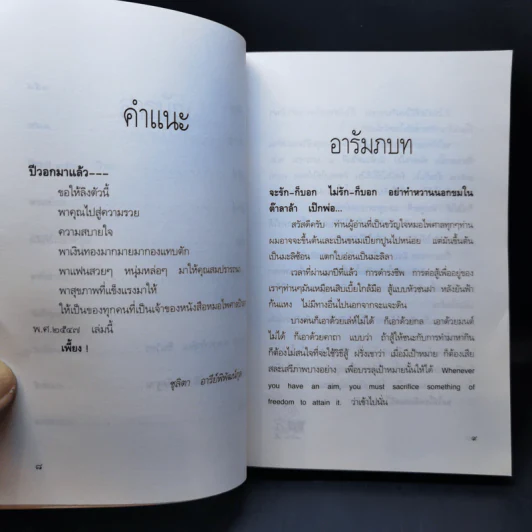 คำแนะ
ปีวอกมาแล้ว---
ขอให้ลิงตัวนี้
พาคุณไปสู่ความรวย
ความสบายใจ
พาเงินทองมากมายมากองแทบตัก
พาแฟนสวยๆ หนุ่มหล่อๆ มาให้คุณสมปรารถนา
พาสุขภาพที่แข็งแรงมาให้
ให้เป็นของทุกคนที่เป็นเจ้าของหนังสือหมอไพศาลปี
พ.ศ.๒๕๔๗ เล่มนี้
เพี้ยง !
ชุลิตา อารีย์พิพัฒน์กุล
๘
อารัมภบท
จะรัก-ก็บอก ไม่รัก-ก็บอก อย่าทำหวานนอกขมใน
ต๊าลาล้า เป๊กพ่อ...
สวัสดีครับ ท่านผู้อ่านที่เป็นขวัญใจหมอไพศาลทุกๆท่าน
ผมอาจจะขึ้นต้นและเป็นขนมเปียกปูนไปหน่อย แต่มันขึ้นต้น
เป็นมะลิซ้อน แตกใบอ่อนเป็นมะลิลา
เวลาที่ผ่านมาปีที่แล้ว การดำรงชีพ การต่อสู้เพื่ออยู่ของ
เราๆท่านๆมันเหมือนสิบเบี้ยใกล้มือ สู้แบบหัวชนฝา หลังยันฟ้า
ก้นแหงง ไม่มีทางอื่นไปนอกจากจะแฉะดัน
บางคนก็เอาด้วยเล่ห์ไม่ได้ ก็เอาด้วยกล เอาด้วยมนต์
ไม่ได้ ก็เอาด้วยคาถา แบบว่า ถ้าสู้ให้ชนะกับการทำมาหากิน
ก็ต้องไม่สนใจที่จะใช้วิธีสู้ ฝรั่งเขาว่า เมื่อมีเป้าหมาย ก็ต้องเสีย
สละเสรีภาพบางอย่าง เพื่อบรรลุเป้าหมายนั้นให้ได้ Whenever
you have an aim, you must sacrifice something of
freedom to attain it. ว่าเข้าไปนั่น
๙